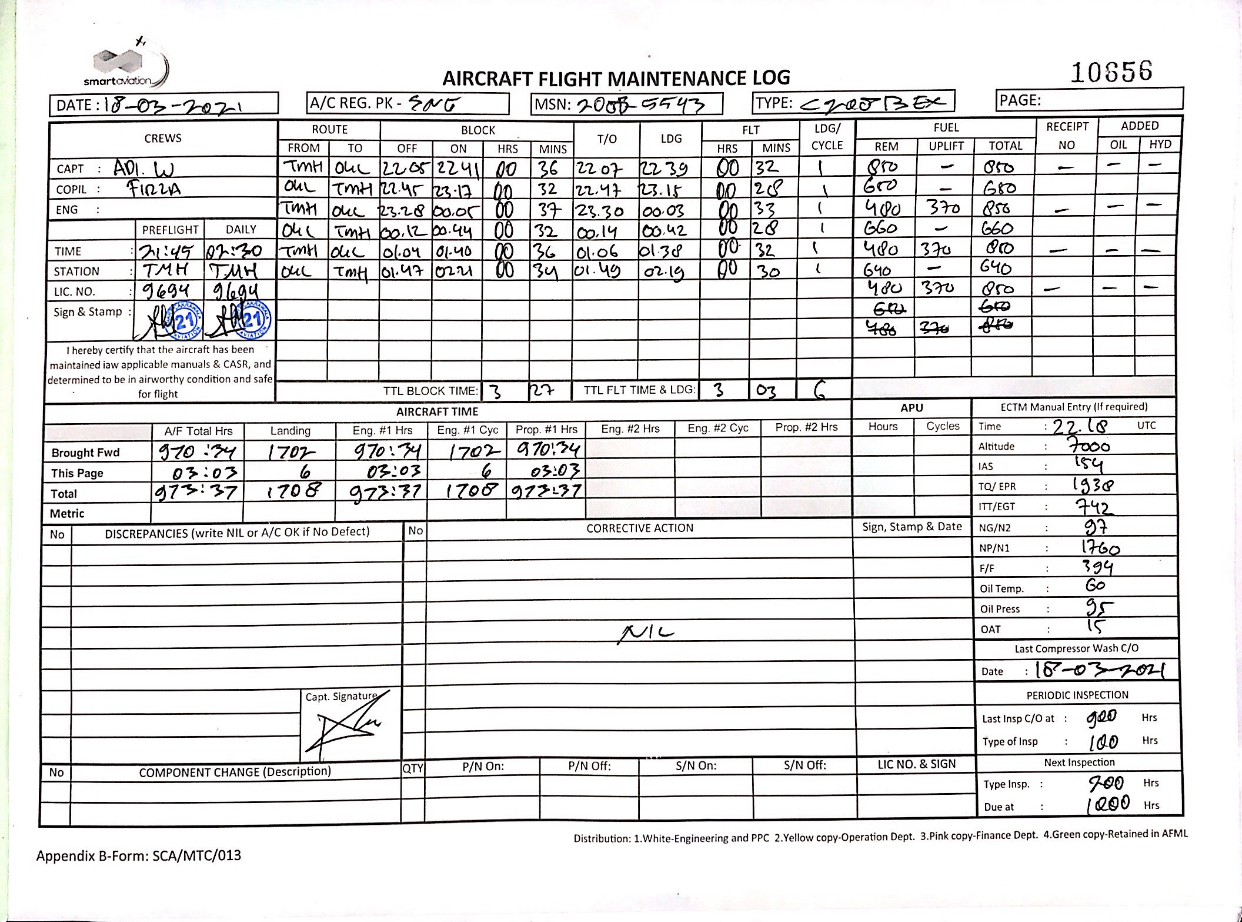 smartaviation
AIRCRAFT FLIGHT MAINTENANCE LOG
10856
DATE : 18-03-2021 A/C REG. PK - SNG MSN: 208B-5543 TYPE: C208B EX PAGE:
CREWS ROUTE BLOCK T/O LDG FLT LDG/ CYCLE FUEL RECEIPT NO ADDED
FROM TO OFF ON HRS MINS HRS MINS REM UPLIFT TOTAL OIL HYD
CAPT : ADI. W TMH OKL 22.05 22 41 00 36 22 07 22 39 00 32 1 850 — 850 — — —
COPIL : FIRZA OKL TMH 22.45 23.17 00 32 22.47 23.15 00 28 1 680 — 680
ENG : TMH OKL 23.28 00.05 00 37 23.30 00.03 00 33 1 480 370 850 — — —
PREFLIGHT DAILY OKL TMH 00.12 00.44 00 32 00.14 00.42 00 28 1 660 — 660
TIME : 21:45 02:30 TMH OKL 01.04 01.40 00 36 01.06 01.38 00 32 1 480 370 850 — — —
STATION : TMH TMH OKL TMH 01.47 02.21 00 34 01.49 02.19 00 30 1 640 — 640
LIC. NO. : 9694 9694 480 370 850 — — —
Sign & Stamp : 21 21
I hereby certify that the aircraft has been
maintained iaw applicable manuals & CASR, and
determined to be in airworthy condition and safe
for flight
TTL BLOCK TIME: 3 27 TTL FLT TIME & LDG: 3 03 6
AIRCRAFT TIME APU ECTM Manual Entry (If required)
A/F Total Hrs Landing Eng. #1 Hrs Eng. #1 Cyc Prop. #1 Hrs Eng. #2 Hrs Eng. #2 Cyc Prop. #2 Hrs Hours Cycles Time : 22.18 UTC
Brought Fwd 970:34 1702 970:34 1702 970:34 Altitude : 7000
This Page 03:03 6 03:03 6 03:03 IAS : 154
Total 973:37 1708 973:37 1708 973:37 TQ/ EPR : 1938
Metric ITT/EGT : 742
No DISCREPANCIES (write NIL or A/C OK if No Defect) No CORRECTIVE ACTION Sign, Stamp & Date NG/N2 : 97
NP/N1 : 1760
F/F : 394
Oil Temp. : 60
Oil Press : 95
NIL OAT : 15
Last Compressor Wash C/O
Date : 18-03-2021
Capt. Signature PERIODIC INSPECTION
Last Insp C/O at : 900 Hrs
Type of Insp : 100 Hrs
No COMPONENT CHANGE (Description) QTY P/N On: P/N Off: S/N On: S/N Off: LIC NO. & SIGN Next Inspection
Type Insp. : 200 Hrs
Due at : 1000 Hrs
Distribution: 1.White-Engineering and PPC 2.Yellow copy-Operation Dept. 3.Pink copy-Finance Dept. 4.Green copy-Retained in AFML
Appendix B-Form: SCA/MTC/013